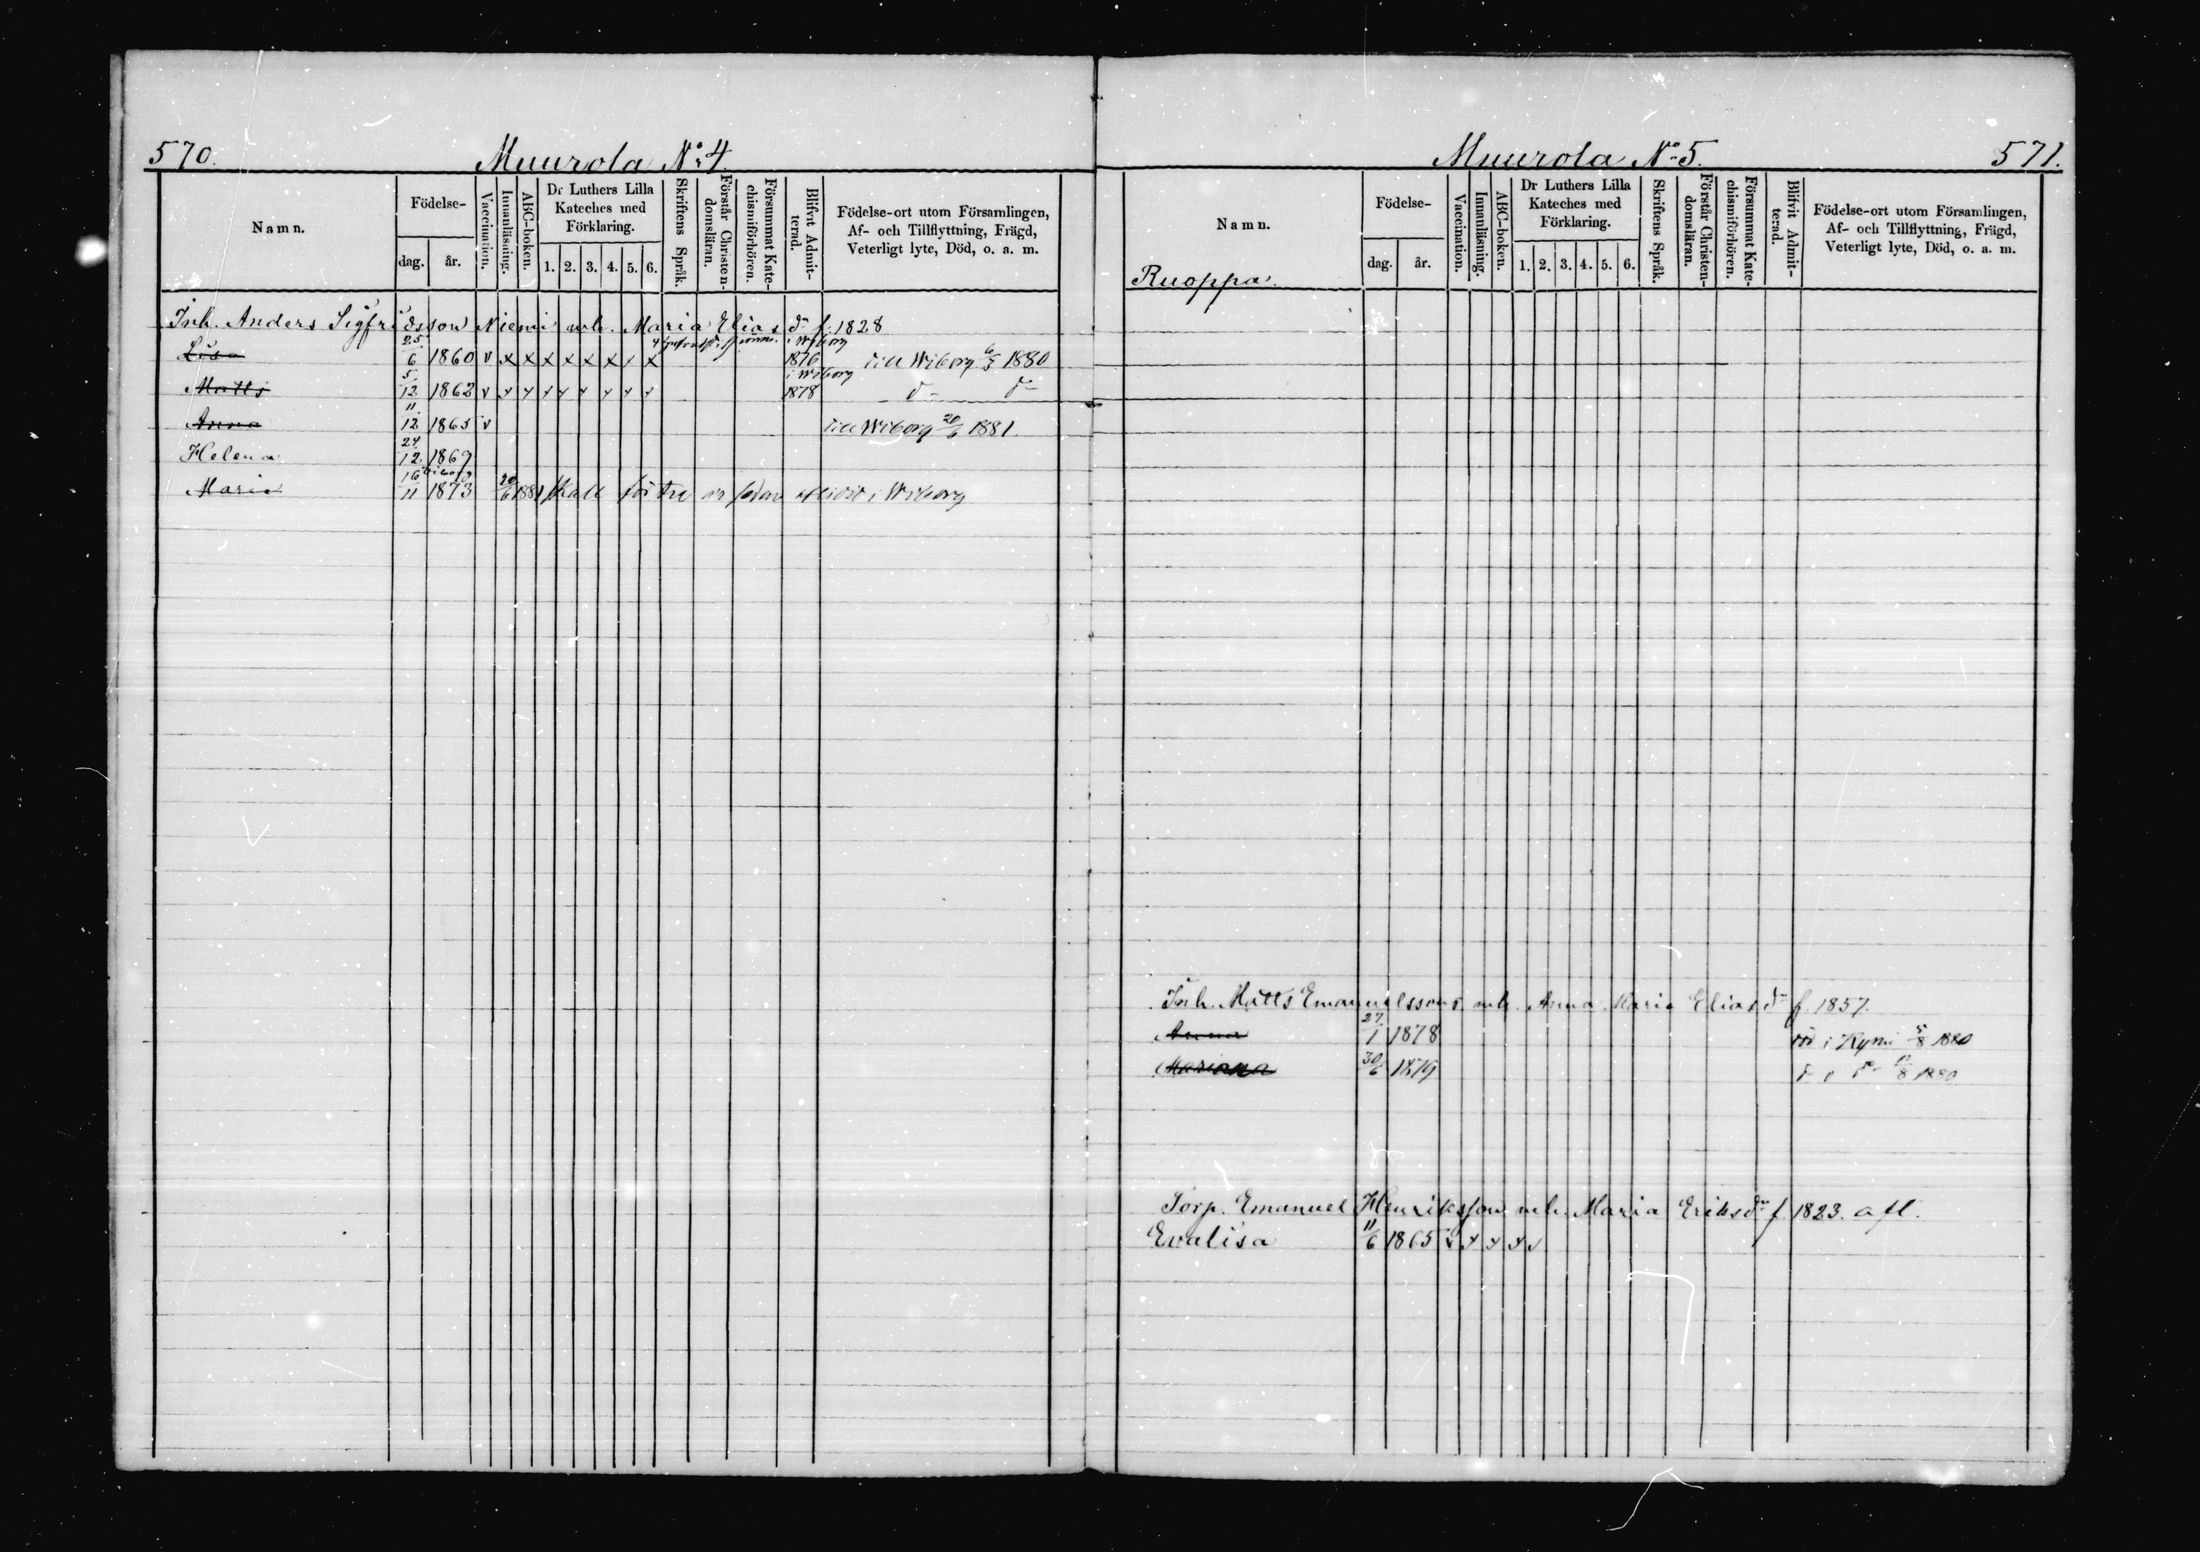 570.
Muurola No 4.
Namn.
Födelse-
dag.
år.
Vaccination.
Innanläsning.
ABC-boken.
Dr Luthers Lilla
Kateches med
Förklaring.
1. 2. 3. 4. 5. 6.
Skriftens Språk.
Förstår Christen-
domsläran.
Försummat Kate-
chismiförhören.
Blifvit Admit-
terad.
Födelse-ort utom Församlingen,
Af- och Tillflyttning, Frägd,
Veterligt lyte, Död, o. a. m.
Inh. Anders Sigfridsson Niemi mh. Maria Elias dr f. 1828
i Wiborg
Lisa 25/6 1860 v x x x x x x x x 1876 till Wiborg 1880
i Wiborg
Matts 5/12 1862 v 1878 do do
Anna 11/12 1865 v till Wiborg 20/6 1881.
Helena 24/12 1869
Maria 16/11 1873 20/6 1881 i Wiborg
Muurola No 5.
571.
Namn.
Ruoppa.
Födelse-
dag.
år.
Vaccination.
Innanläsning.
ABC-boken.
Dr Luthers Lilla
Kateches med
Förklaring.
1. 2. 3. 4. 5. 6.
Skriftens Språk.
Förstår Christen-
domsläran.
Försummat Kate-
chismiförhören.
Blifvit Admit-
terad.
Födelse-ort utom Församlingen,
Af- och Tillflyttning, Frägd,
Veterligt lyte, Död, o. a. m.
Inh. Matts Emanuelssons mh. Anna Maria Elias dr f. 1857.
Anna 27/1 1878 död i Kymi 5/8 1880
Mariana 30/6 1879 d i do 8 1880
Torp. Emanuel Henriksson mh. Maria Eriks dr f. 1823. afl.
Evalisa 11/6 1865 v